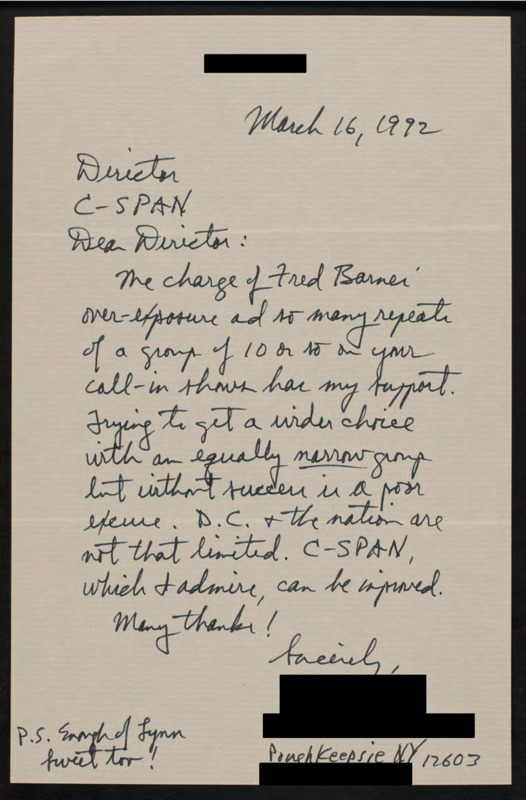 March 16, 1992
Director
C-SPAN
Dear Director:
The charge of Fred Barnes'
over-exposure ad so many repeats
of a group of 10 or so on your
call-in shows has my support.
Trying to get a wider choice
with an equally narrow group
but without success is a poor
excuse. D.C. & the nation are
not that limited. C-SPAN,
which I admire, can be improved.
Many thanks!
Sincerely,
Poughkeepsie NY 12603
P.S. Enough of Lynn
Sweet too!